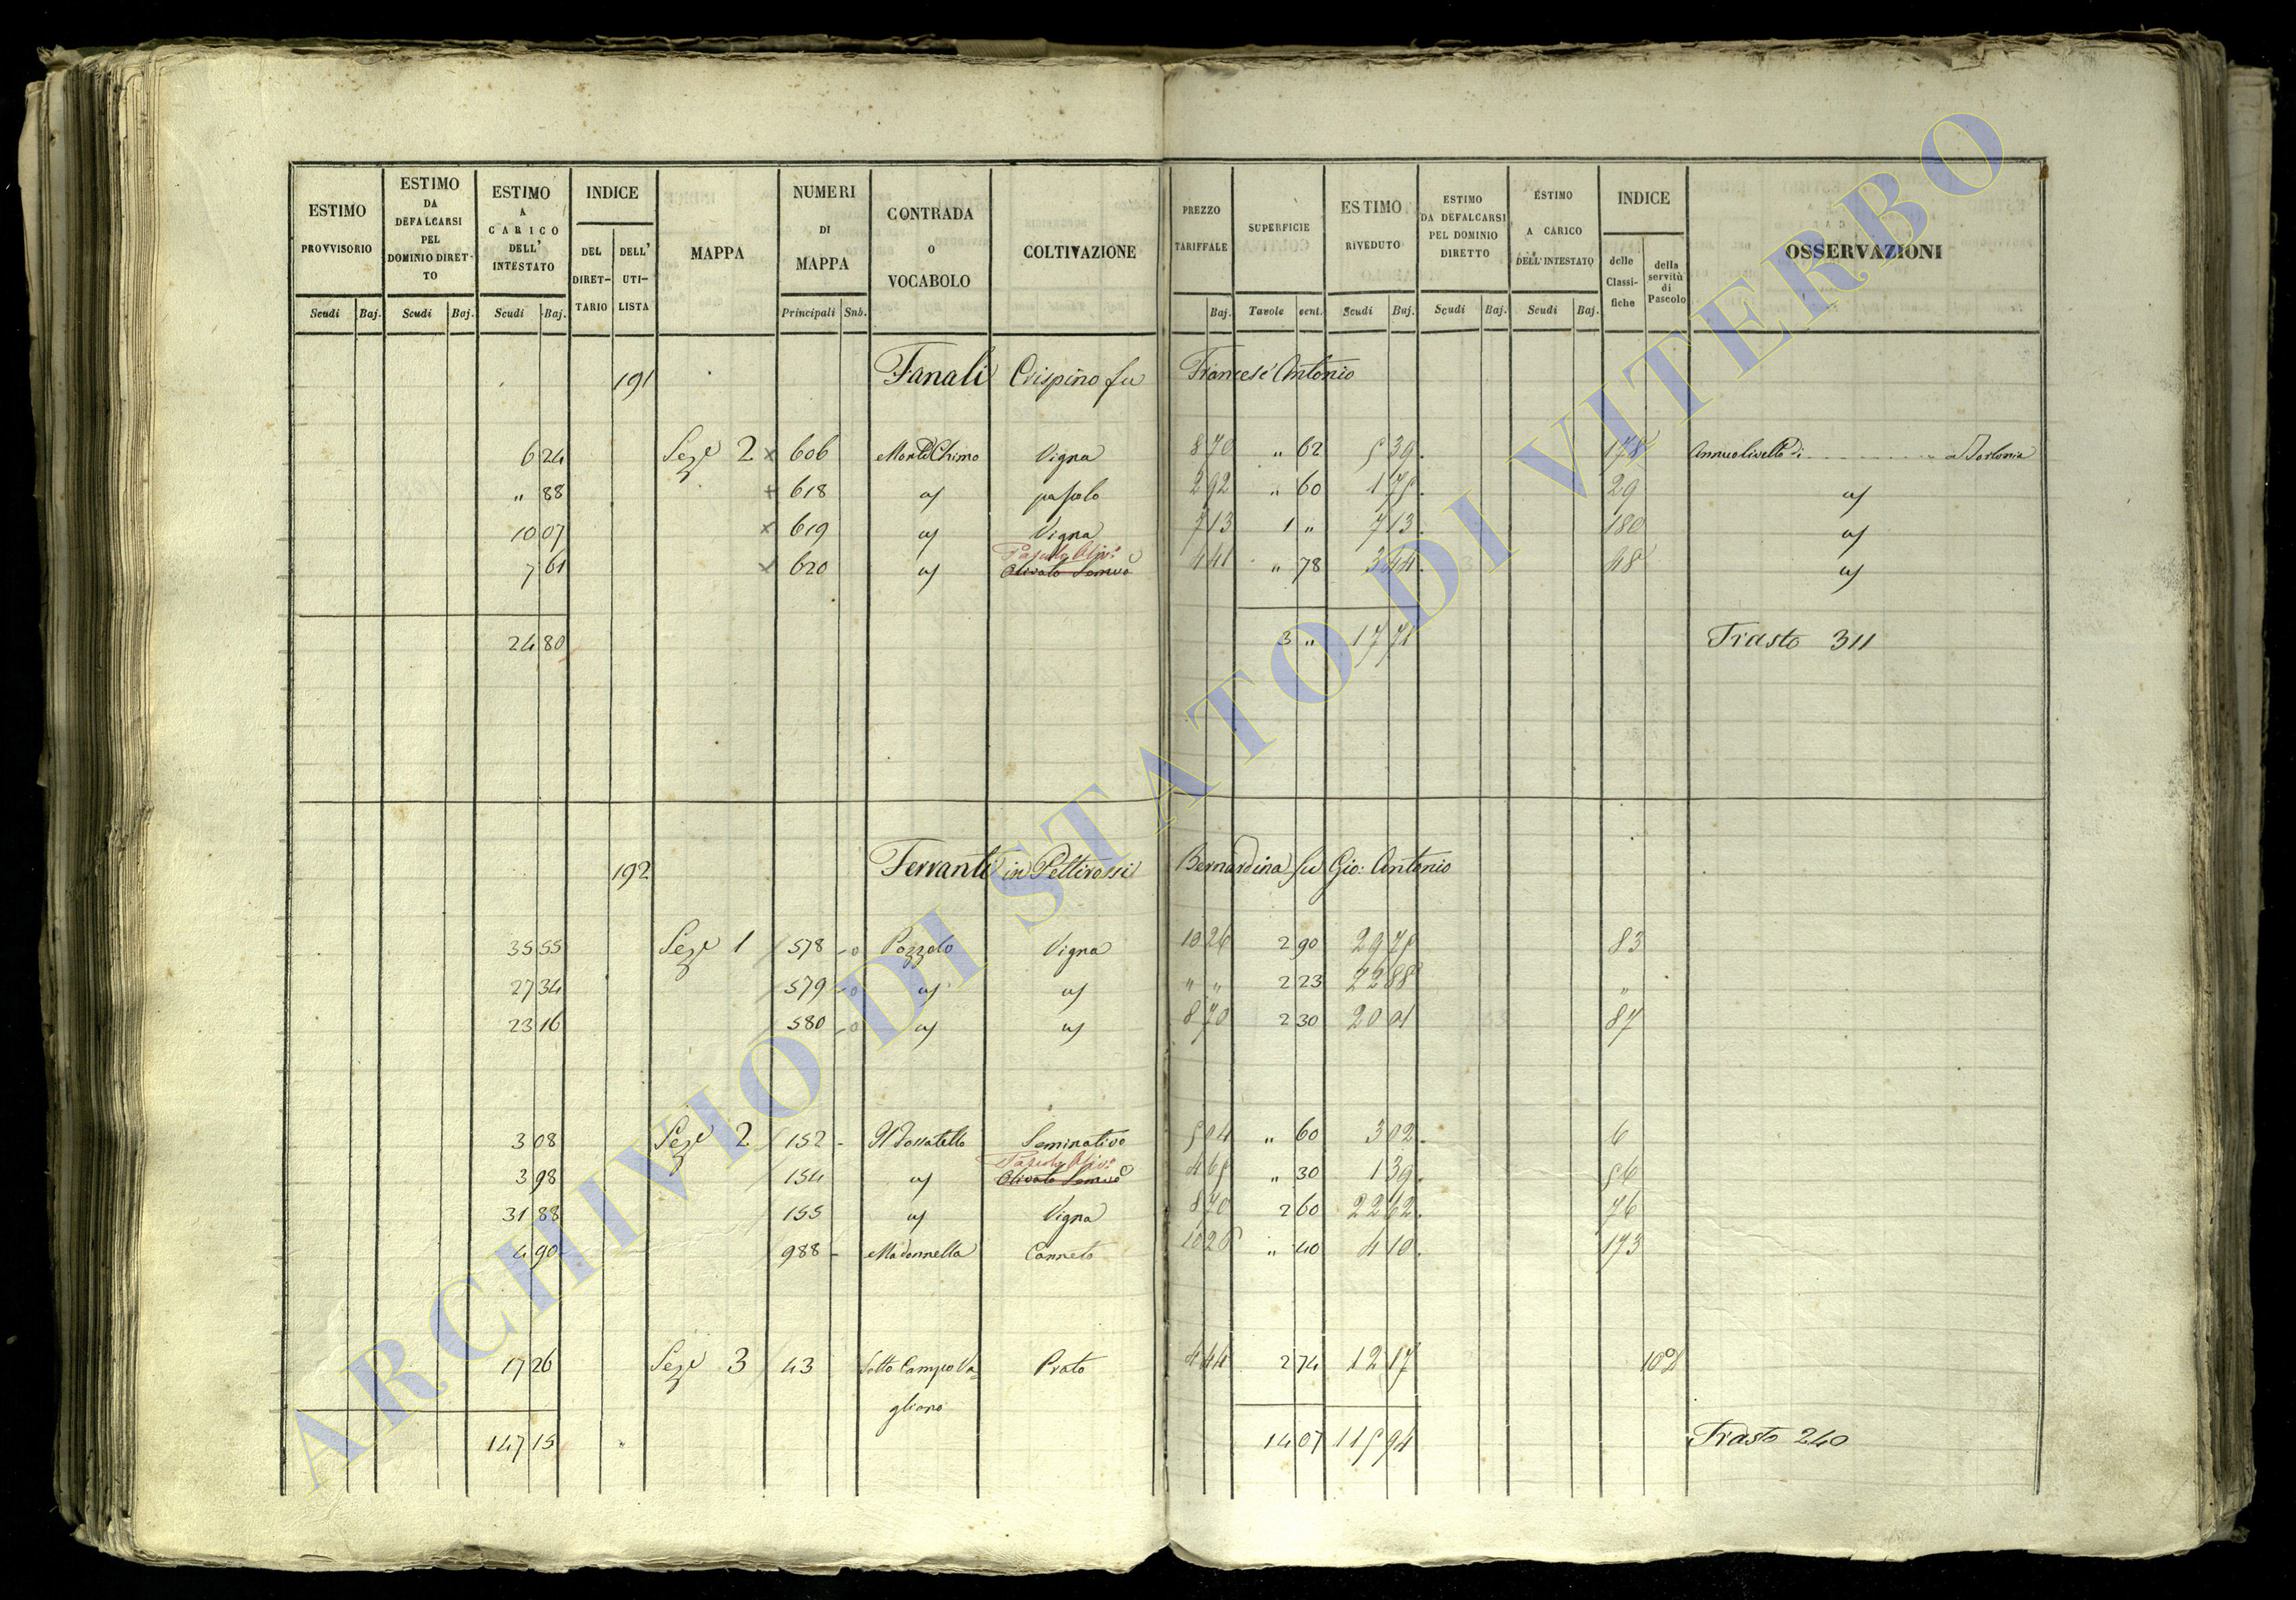 ESTIMO PROVVISORIO | ESTIMO DA DEFALCARSI PEL DOMINIO DIRETTO | ESTIMO A CARICO DELL' INTESTATO | INDICE | MAPPA | NUMERI DI MAPPA | CONTRADA O VOCABOLO | COLTIVAZIONE | PREZZO TARIFFALE | SUPERFICIE | ESTIMO RIVEDUTO | ESTIMO DA DEFALCARSI PEL DOMINIO DIRETTO | ESTIMO A CARICO DELL' INTESTATO | INDICE | OSSERVAZIONI
DEL DIRETTARIO | DELL' UTILISTA | delle Classifiche | della servitù di Pascolo
Scudi | Baj. | Scudi | Baj. | Scudi | Baj. | Principali | Sub. | Baj. | Tavole | cent. | Scudi | Baj. | Scudi | Baj. | Scudi | Baj.
191 Fanali Crispino fu Francesc' Antonio
6 24 Seze 2 x 606 Monte Chimo Vigna 8 70 " 62 5 39 178 Annuo livello di a Torlonia
" 88 x 618 " pascolo 2 92 " 60 1 75 29 "
10 07 x 619 " Vigna 7 13 1 " 7 13 180 "
Pascolo Olivo
7 61 x 620 " Olivato Semivo 4 41 " 78 3 44 48 "
24 80 3 " 17 71 Trasto 311
192 Ferranti in Pettirossi Bernardina fu Gio: Antonio
35 55 Seze 1 578 Pozzolo Vigna 10 26 2 90 29 75 83
27 34 579 " " " " 2 23 22 88 "
23 16 580 " " 8 70 2 30 20 01 87
3 08 Seze 2 152 Il Fossatello Seminativo 5 04 " 60 3 02 6
Pascolo Olivo
3 98 154 " Olivato Semivo 4 65 " 30 1 39 56
31 88 155 " Vigna 8 70 2 60 22 62 76
4 90 988 Madonnella Canneto 10 26 " 40 4 10 173
17 26 Seze 3 43 Sotto Campo Va= Prato 4 44 2 74 12 17
gliano
147 15 14 07 115 94 Trasto 240
ARCHIVIO DI STATO DI VITERBO